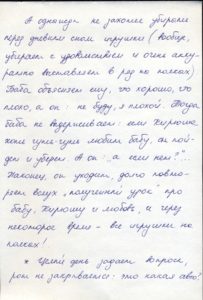 А однажды не захотел убирать
перед дневным сном игрушки (вообще,
убирает с удовольствием и очень акку-
ратно выставляет в ряд по полкам).
Баба объясняет ему, что хорошо, что
плохо, а он: не буду, я плохой. Тогда
баба не выдерживает: если Кирюша
хоть чуть-чуть любит бабу, он пой-
дет и уберет. А он: "а если нет?"
Наконец, он уходит, долго повто-
ряет вслух "полученный урок" про
бабу, Кирюшу и любовь, и через
некоторое время - все игрушки на
полках!
* Целый день задает вопросы,
рот не закрывается: это какая авто!